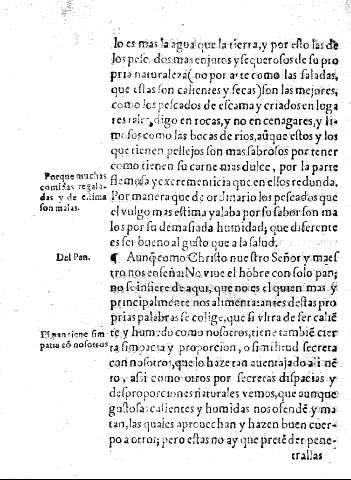 lo es mas la agua que la tierra, y por esto las de
los peſcados mas enjutos y ſequeroſos de ſu pro
pria naturaleza (no por arte como las ſaladas,
que eſtas ſon calientes y ſecas) ſon las mejores,
como los peſcados de eſcama y criados en loga
res tales, digo en rocas, y no en cenagares, y li
moſos como las bocas de rios, aũque eſtos y los
que tienen pellejos ſon mas ſabroſos por tener
como tienen ſu carne mas dulce, por la parte
Porque muchas
comidas regala-
das y de eſtima
ſon malas.
flemoſa y excrementicia que en ellos redunda.
Por manera que de ordinario los peſcados que
el vulgo mas eſtima y alaba por ſu ſabor ſon ma
los por ſu demaſiada humidad; que diferente
es ſer bueno al guſto que a la ſalud.
Del Pan.
¶ Aunq̃ como Chriſto nueſtro Señor y maeſ
tro nos enſeña: No viue el hõbre con ſolo pan;
no ſe infiere de aqui, que no es el quien mas y
principalmente nos alimenta: antes deſtas pro
prias palabras ſe colige, que ſi vltra de ſer caliẽ
El pan tiene ſim
patia cõ noſotros
te y humedo como noſotros, tiene tambiẽ cier
ta ſimpacia y proporcion, o ſimilitud ſecreta
con noſotros, que lo haze tan auentajado alimẽ
to, aſsi como otros por ſecretas diſpacias y
deſproporciones naturales vemos, que aunque
guſtoſas calientes y humidas nos ofendẽ y ma
tan, las quales aprouechan y hazen buen cuer-
po a otros; pero eſtas no ay que pretẽder pene-
trallas